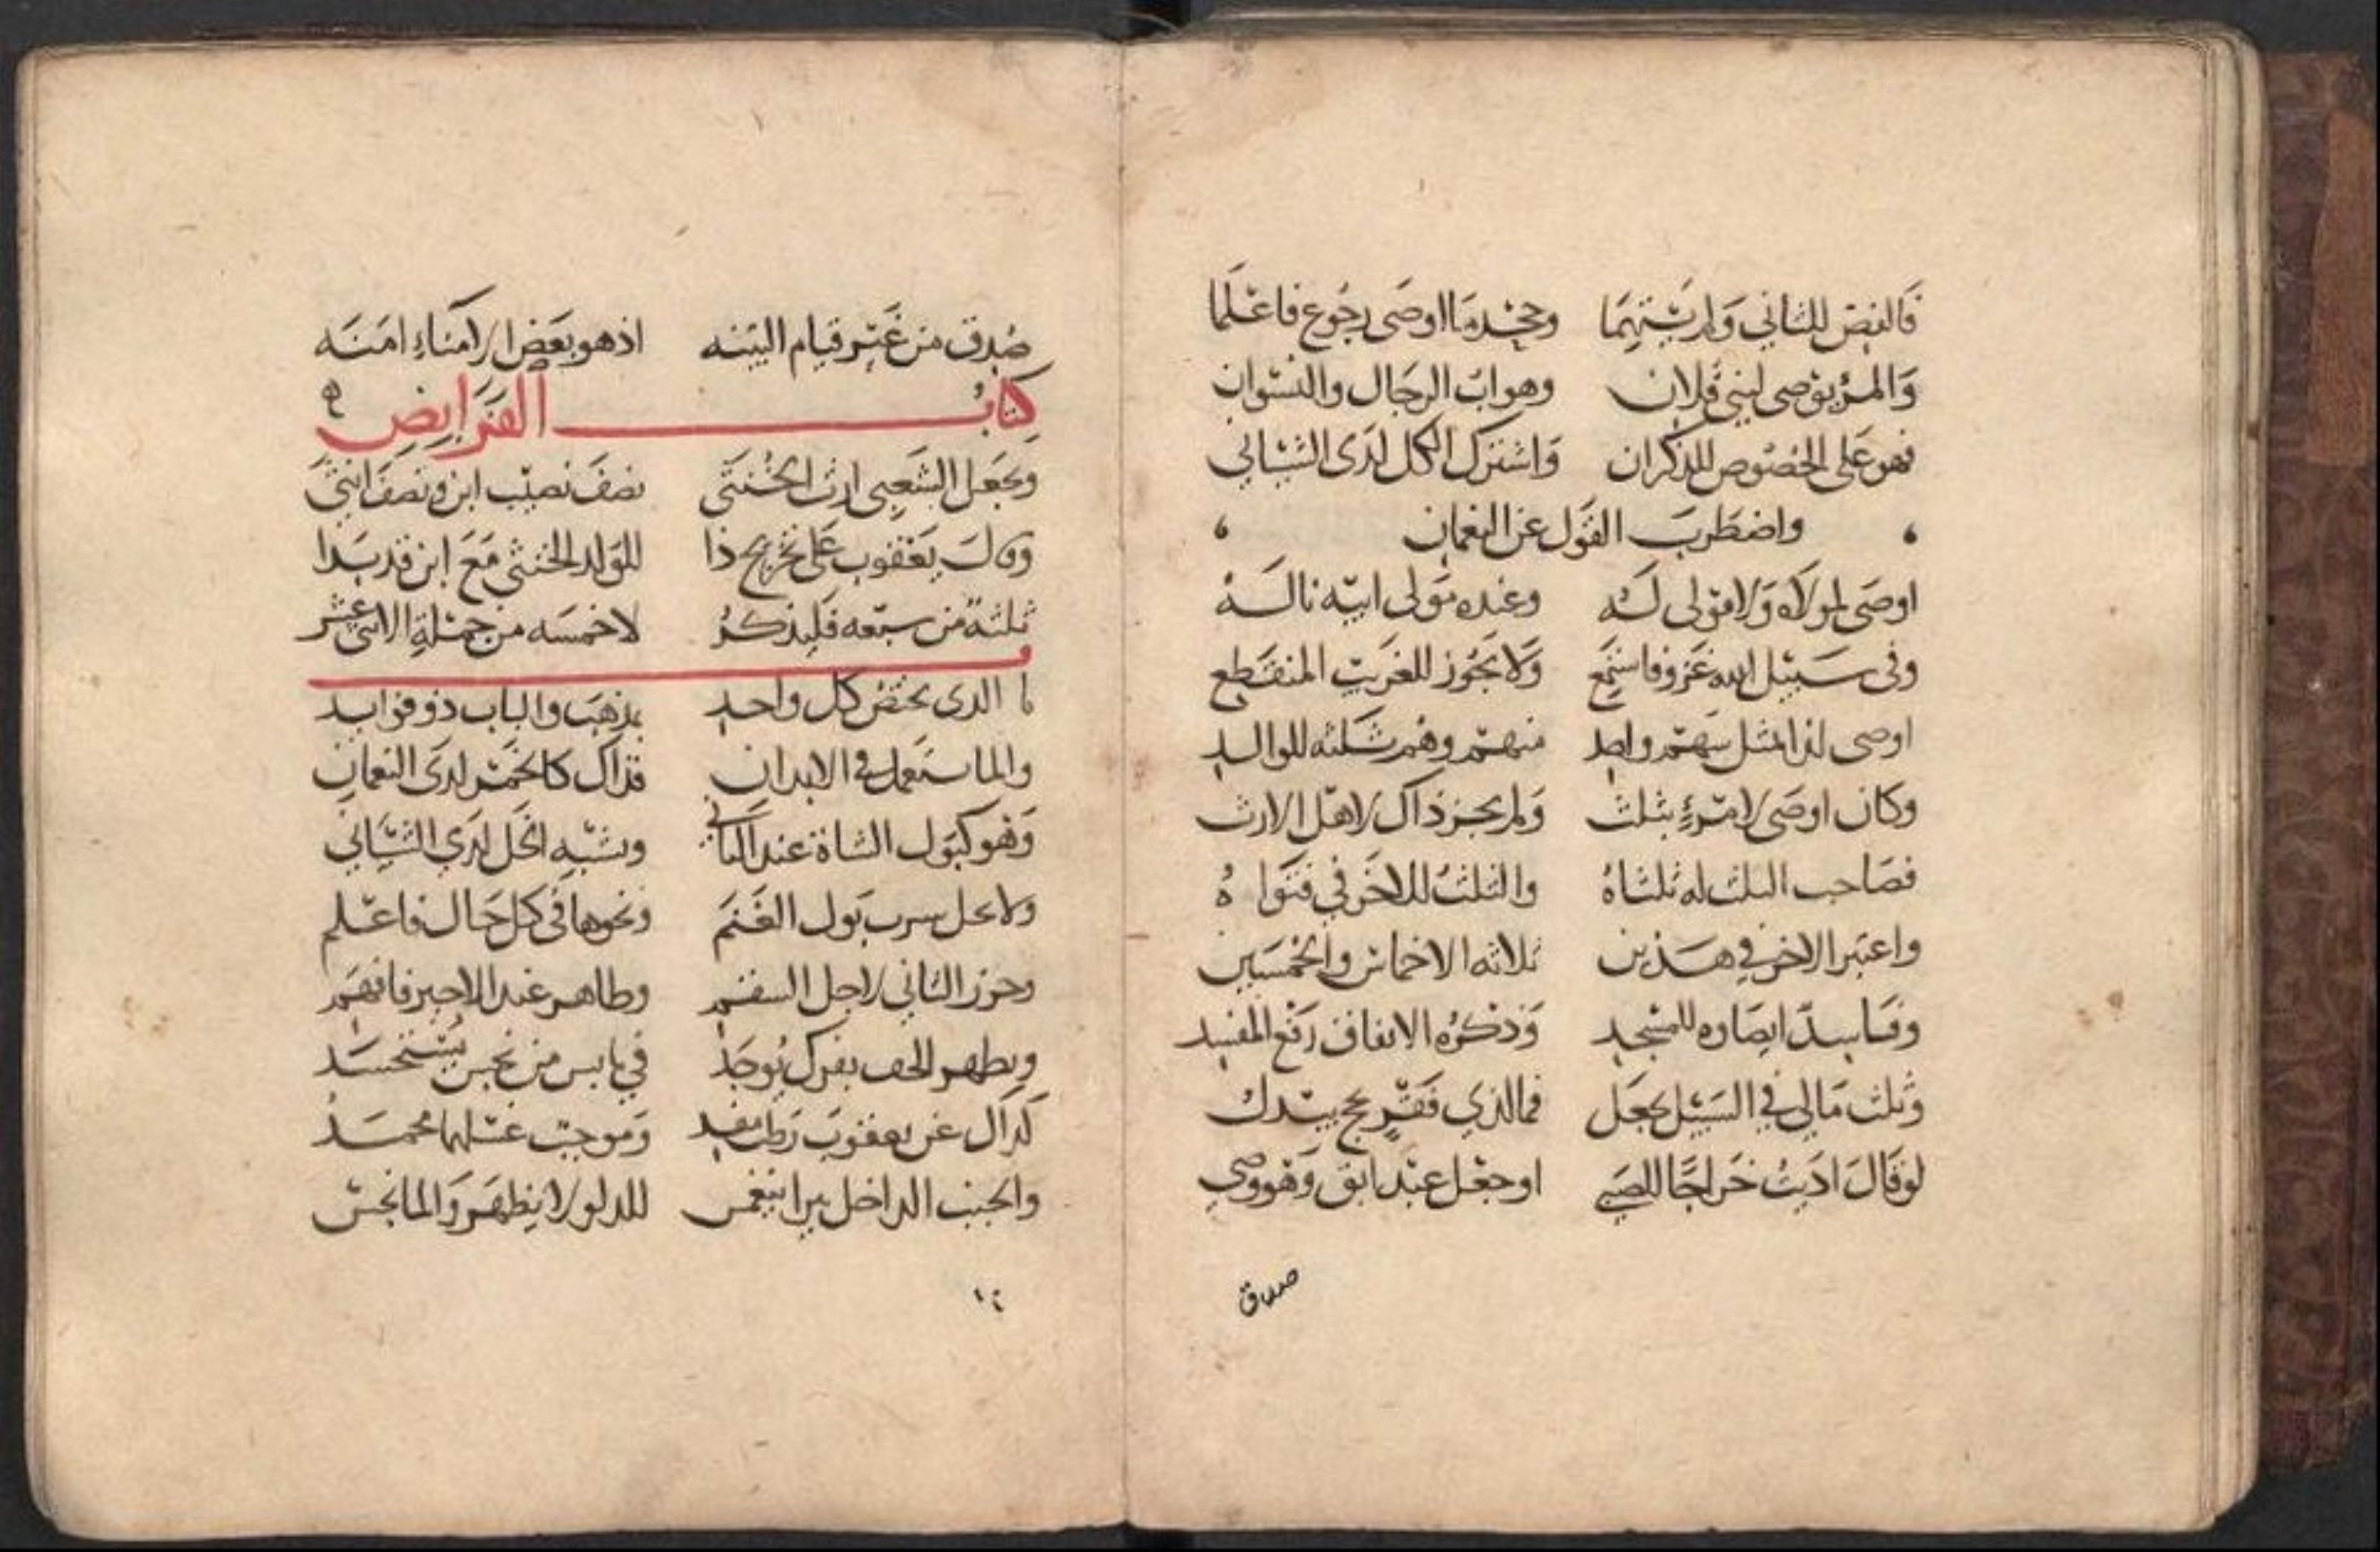 فَالفض للثاني وَلم يتهمَا وجحدمَا اوصَى رجُوع فاعْلَما
وَالمرْ يوصى لبني فُلان وهو ابْ الرجَال والنسْوان
فهو عَلى الخصُوص للذكران وَاشترك الكل لدَى الشيبانى
واضطَربَ القَول عن النعمان
اوصَى لمولاه وَلا مَوْلى لَه وعنده مَولى ابيْه نالَهُ
وفى سَبيْل الله غزو فاسْتمَع وَلا يَجُوز للغَريْب المنقَطع
اوصى لذا بمثل سَهْم واحد منهم وهم ثَلثه للوالد
وكان اوصَى لامْرءٍ بثلث وَلم يجز ذاك لاهْل الارث
فصَاحب الثلث له ثلثاهُ والثلثُ للاخَر في فتوَاهُ
واعتبَر الاخر في هذين ثلاثه الاخماس والخمسَين
وفَاسدٌ ايصَاوه للمسْجد وَذكرُه الانفاق رَفْع المفسد
وَثلث مَالى في السَبيْل يجعَل فمالذي
لو قَالَ ادّيتُ خَراجًا للصَبي او جعْل عَبْد ابق وَهو وصي
صدق
صُدق من غَيْر قيام البيّنه اذ هو بعَض الامناءِ امنَه
كتابُ الفَرايض
ويجَعل الشَعبي ارث الخُنثَى نصفَ نصيْب ابن ونصفَ انثىَ
وقالَ يَعْقوب عَلى تخريج ذا للوَلد الخنثى مَعَ ابن قد بَدا
ثلثةٌ من سبْعه فَليذكرُ لا خمسَه من جمْلةِ الاثنى عشر
ما الذى يختصُ كل واحد بمذهَب والباب ذو فوايد
والما استعمل في الابدان فذاك كالخمْر لدَى النعمان
وَهو كبَول الشاة عند الثاني ويشبْه الخَل لدَى الشيبَاني
ولا يحل شرب بَول الغَنَم ونحوها فى كل حَال فاعْلم
وجوز الثاني لاجل السقم وطاهر عند الاخير فافهَم
ويطهر الخف بفرك يُوجَد في يابس من نجس يستْخسَد
كذاك عن يعقوبَ وَموجبٌ غسْلها محمد
والجنب الداخل بيرا ينغمس للدلو لا يطهَر وَالما نجس